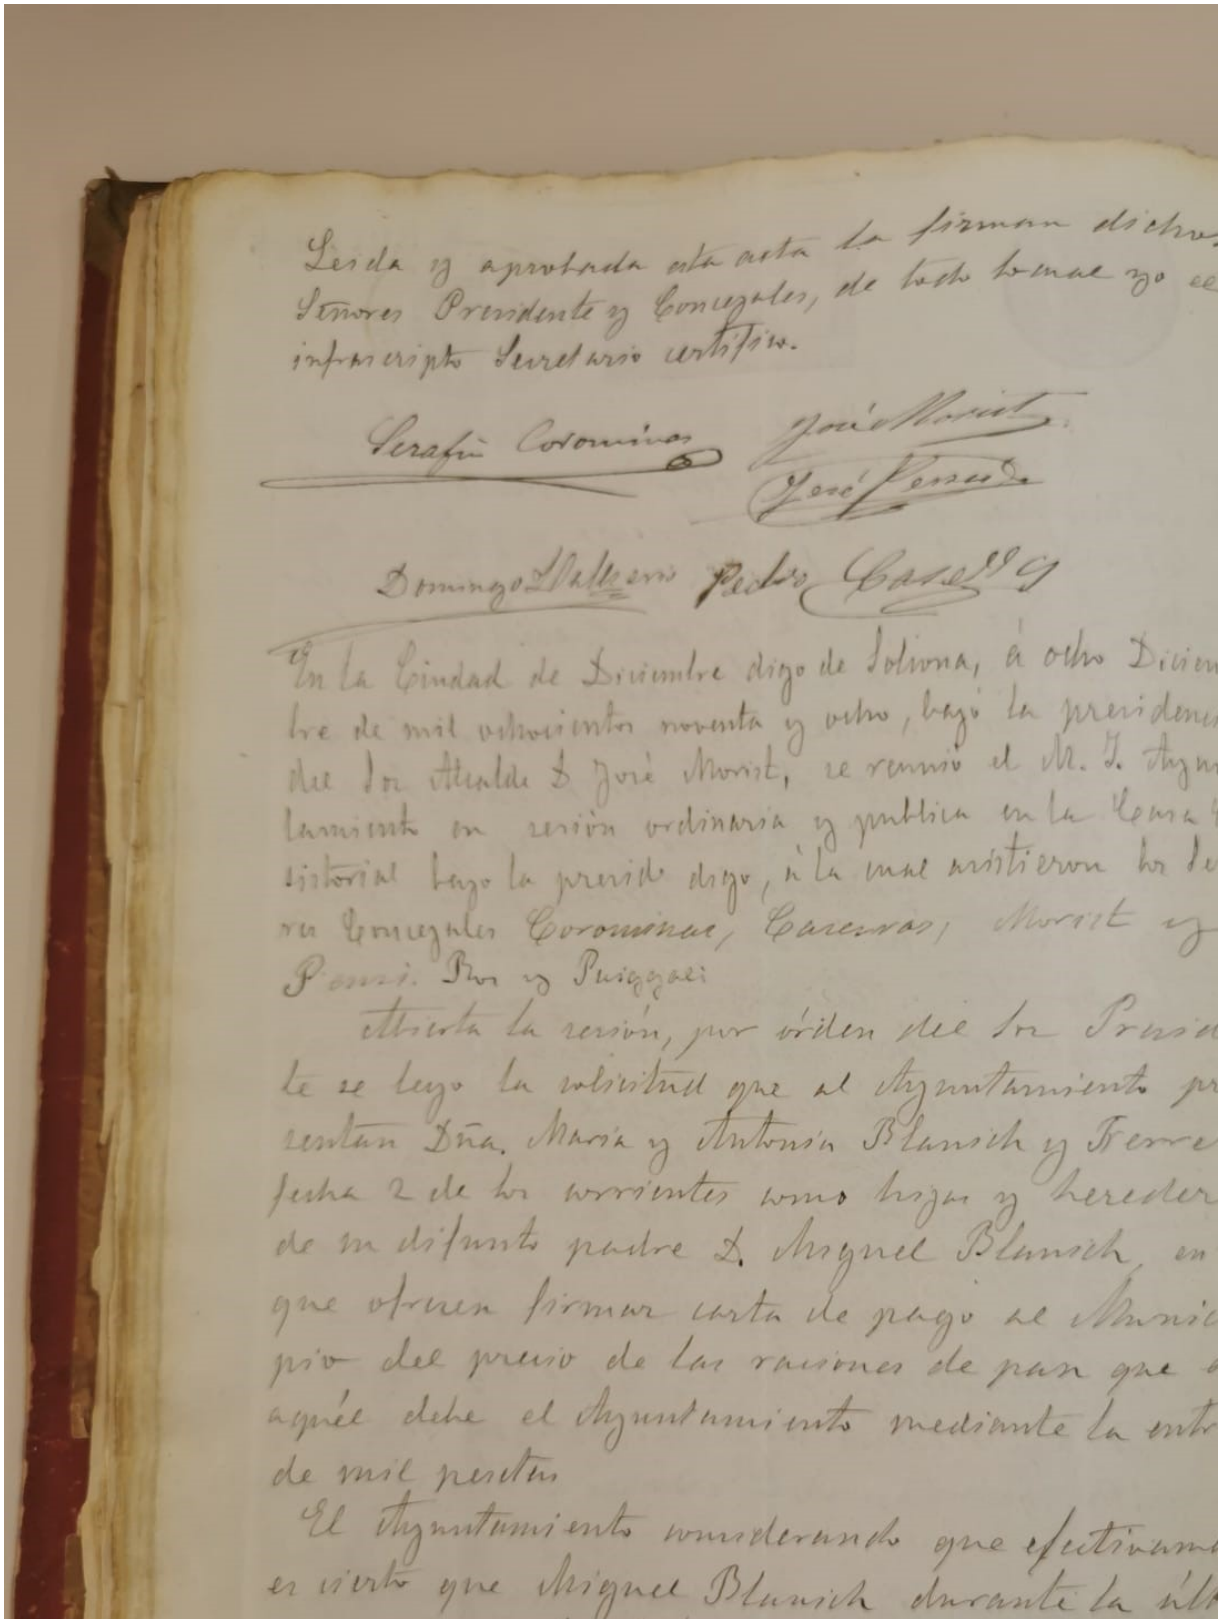 Leida y aprobada esta acta la firman dichos
Señores Presidente y Concejales, de todo lo cual yo el
infrascripto Secretario certifico.
Serafin Corominas José Morist
José
Domingo Pedro Casells
En la Ciudad de Diciembre digo de Solsona, á ocho Diciem
bre de mil ochocientos noventa y ocho, bajó la presidenci
del Sor Alcalde D José Morist, se reunió el M. I. Ayun
tamiento en sesión ordinaria y publica en la Casa
sistorial bajo la presid digo, á la cual asistieron los Se
res Concejales Corominas, Caserras, Morist y
Pensi. Ros y Puiggali
Abierta la sesión, por órden del Sor Presid
te se leyo la solicitud que al Ayuntamiento pr
sentan Dña. Maria y Antonia Blansich y Ferre
fecha 2 de los corrientes como hijas y hereder
de su difunto padre D. Miguel Blansich, en
que ofrecen firmar carta de pago al Munic
pio del precio de las raciones de pan que
aquél debe el Ayuntamiento mediante la entr
de mil pesetas
El Ayuntamiento considerando que efectivame
es cierto que Miguel Blansich durante la últ